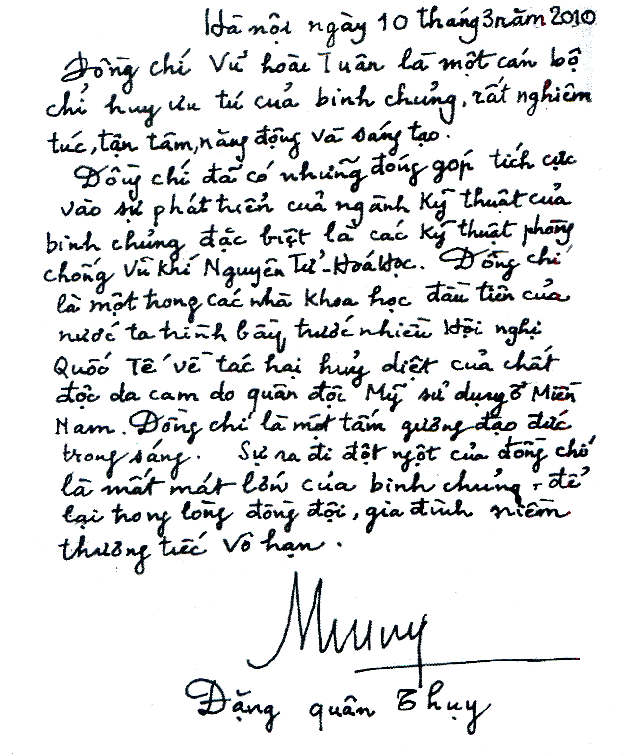 Hà nội ngày 10 tháng 3 năm 2010
Đồng chí Vũ hoài Tuân là một cán bộ
chỉ huy ưu tú của binh chủng, rất nghiêm
túc, tận tâm, năng động và sáng tạo.
Đồng chí đã có những đóng góp tích cực
vào sự phát triển của ngành Kỹ thuật của
binh chủng đặc biệt là các Kỹ thuật phòng
chống Vũ khí Nguyên Tử - Hoá Học. Đồng chí
là một trong các nhà khoa học đầu tiên của
nước ta trình bày trước nhiều Hội nghị
Quốc Tế về tác hại huỷ diệt của chất
độc da cam do quân đội Mỹ sử dụng ở Miền
Nam. Đồng chí là một tấm gương đạo đức
trong sáng. Sự ra đi đột ngột của đồng chí
là mất mát lớn của binh chủng, để
lại trong lòng đồng đội, gia đình niềm
thương tiếc Vô hạn.
Đặng quân Thụy